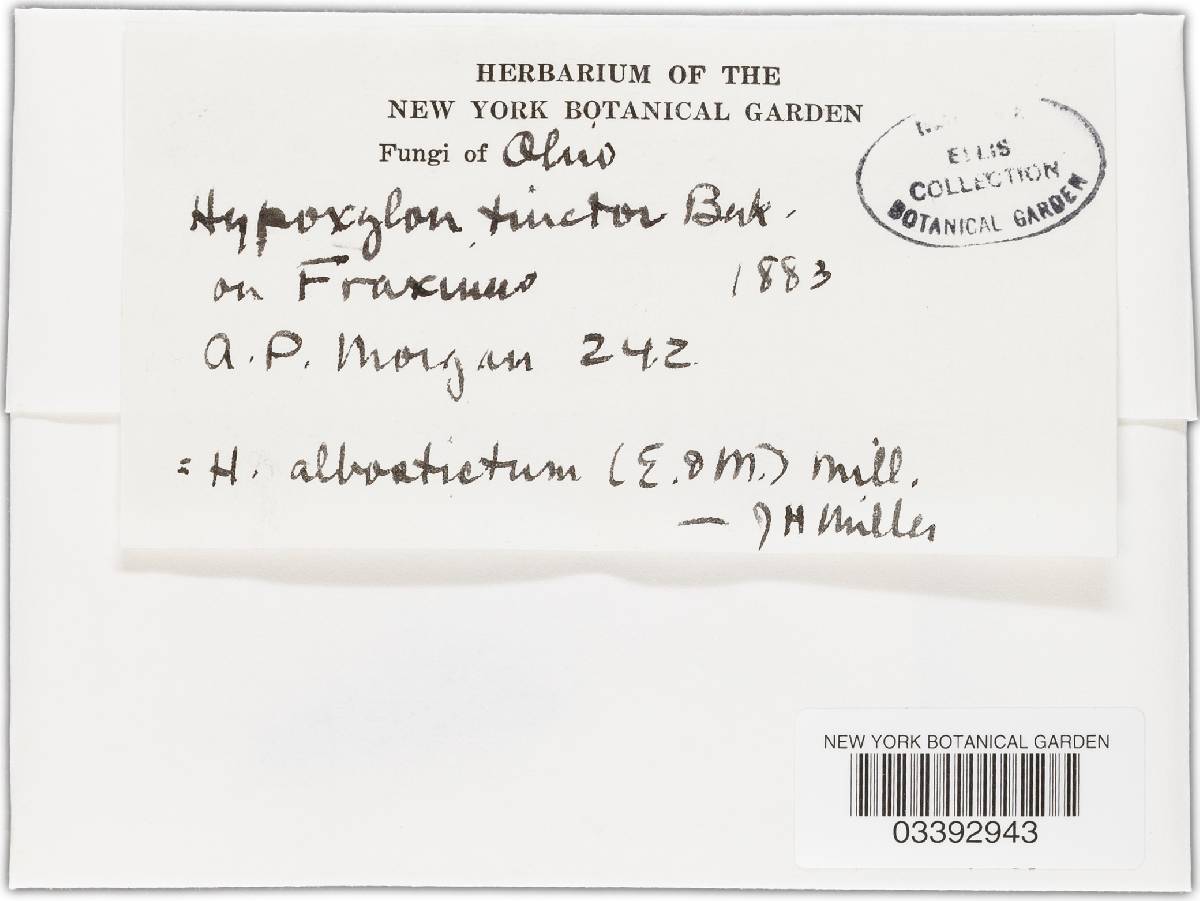 HERBARIUM OF THE
NEW YORK BOTANICAL GARDEN
Fungi of Ohio
ELLIS
COLLECTION
BOTANICAL GARDEN
Hypoxylon tinctor Berk.
on Fraxinus 1883
A. P. Morgan 242
= H. albostictum (E. & M.) Mill.
— J H Miller
NEW YORK BOTANICAL GARDEN
03392943